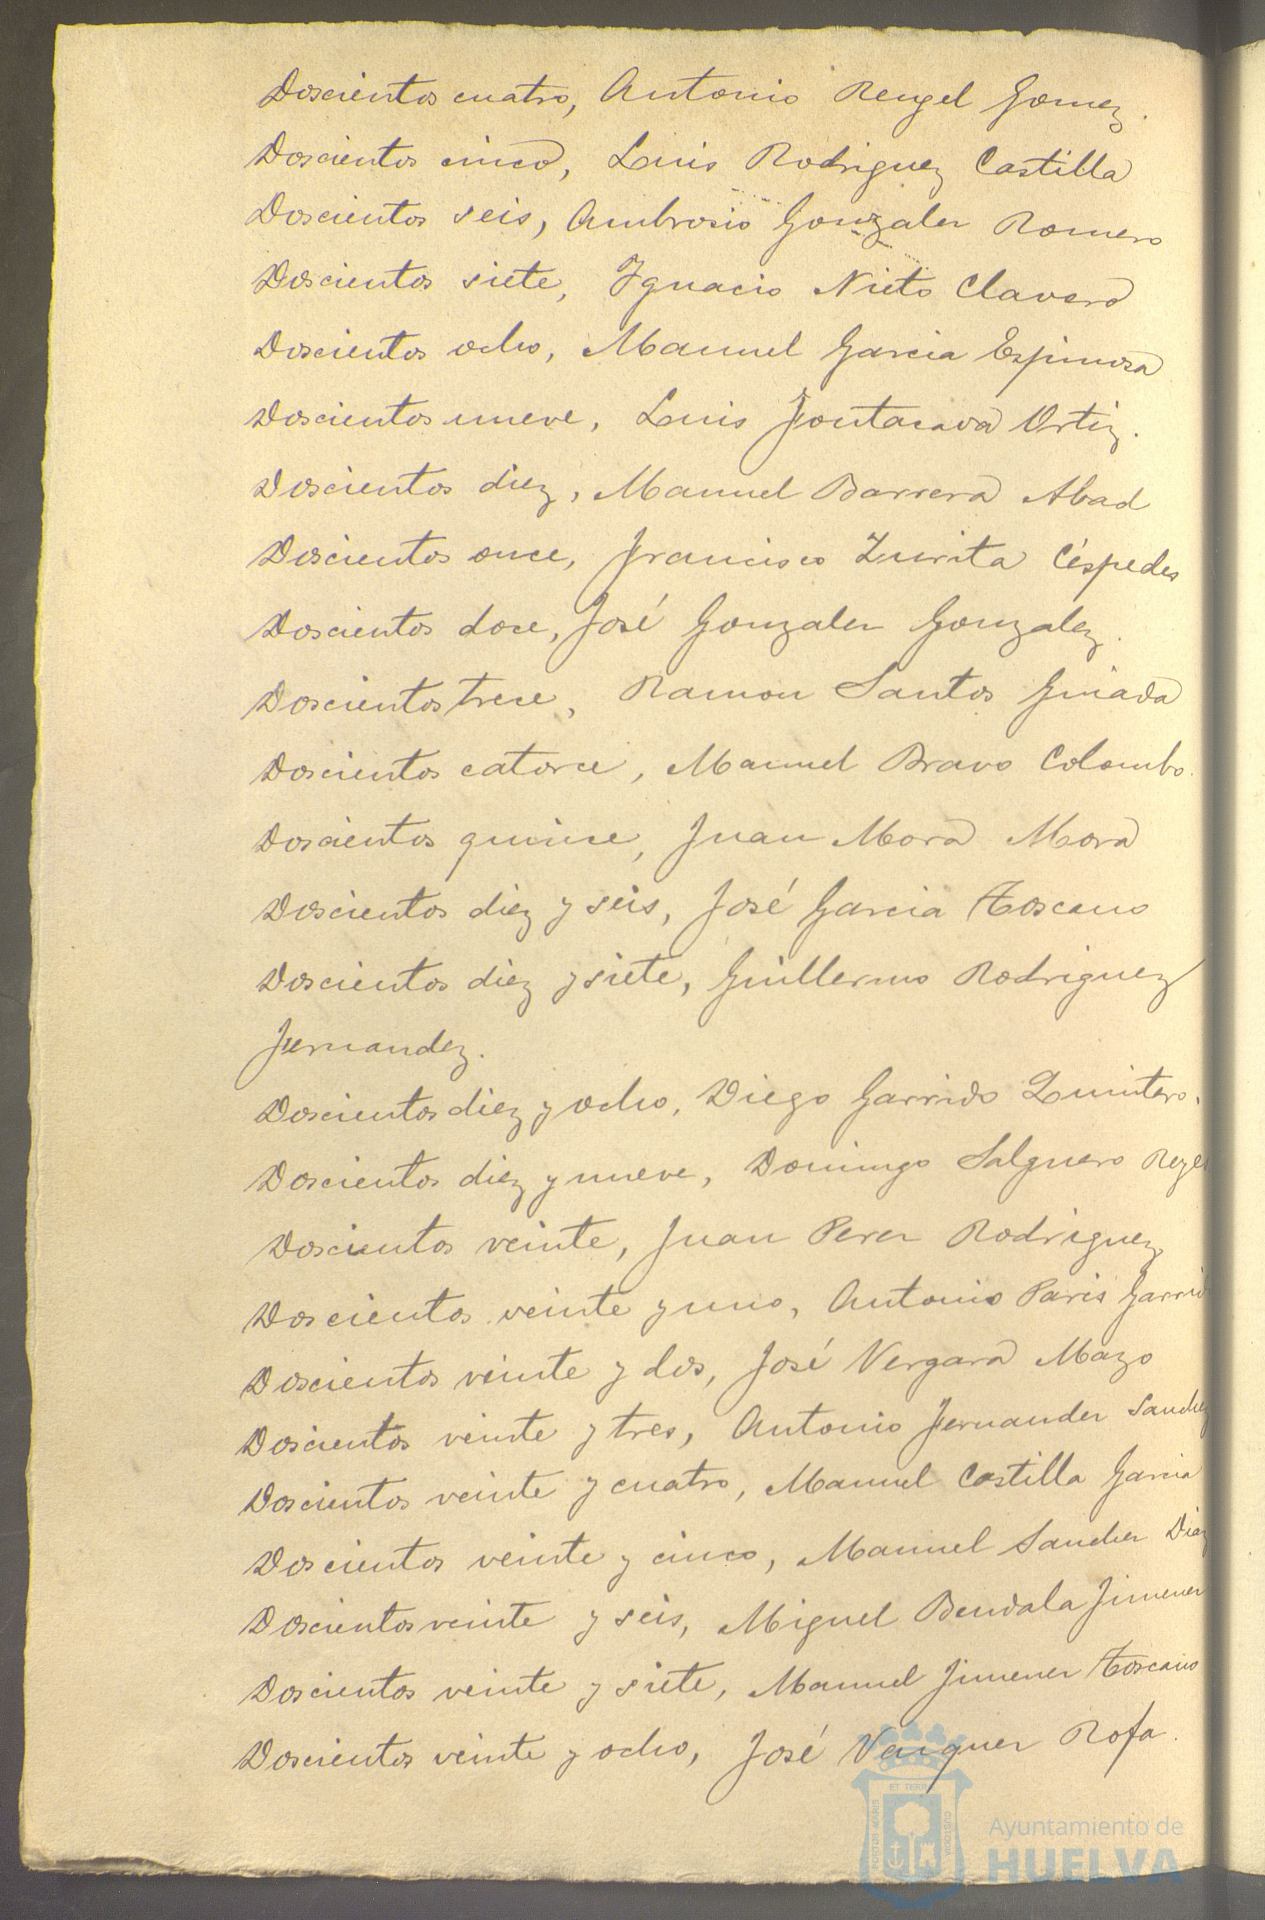 Doscientos cuatro, Antonio Rengel Gomez.
Doscientos cinco, Luis Rodriguez Castilla
Doscientos seis, Ambrosio Gonzalez Romero
Doscientos siete, Ignacio Nieto Clavero
Doscientos ocho, Manuel Garcia Espinosa
Doscientos nueve, Luis Ortiz.
Doscientos diez, Manuel Barrera Abad
Doscientos once, Francisco Zurita Céspedes
Doscientos doce, José Gonzalez Gonzalez.
Doscientos trece, Ramon Santos
Doscientos catorce, Manuel Bravo Colombo.
Doscientos quince, Juan Mora Mora
Doscientos diez y seis, José Garcia Toscano
Doscientos diez y siete, Guillermo Rodriguez
Fernandez.
Doscientos diez y ocho, Diego Garrido Quintero.
Doscientos diez y nueve, Domingo Salguero Reyes
Doscientos veinte, Juan Perez Rodriguez
Doscientos veinte y uno, Antonio Paris Garrido
Doscientos veinte y dos, José Vergara Mazo
Doscientos veinte y tres, Antonio Fernandez Sanchez
Doscientos veinte y cuatro, Manuel Castilla Garcia
Doscientos veinte y cinco, Manuel Sanchez Diaz
Doscientos veinte y seis, Miguel Bendala Jimenez
Doscientos veinte y siete, Manuel Jimenez Toscano
Doscientos veinte y ocho, José Rofa.
ET TERRÆ
PORTUS MARIS
CUSTODIA
Ayuntamiento de
HUELVA